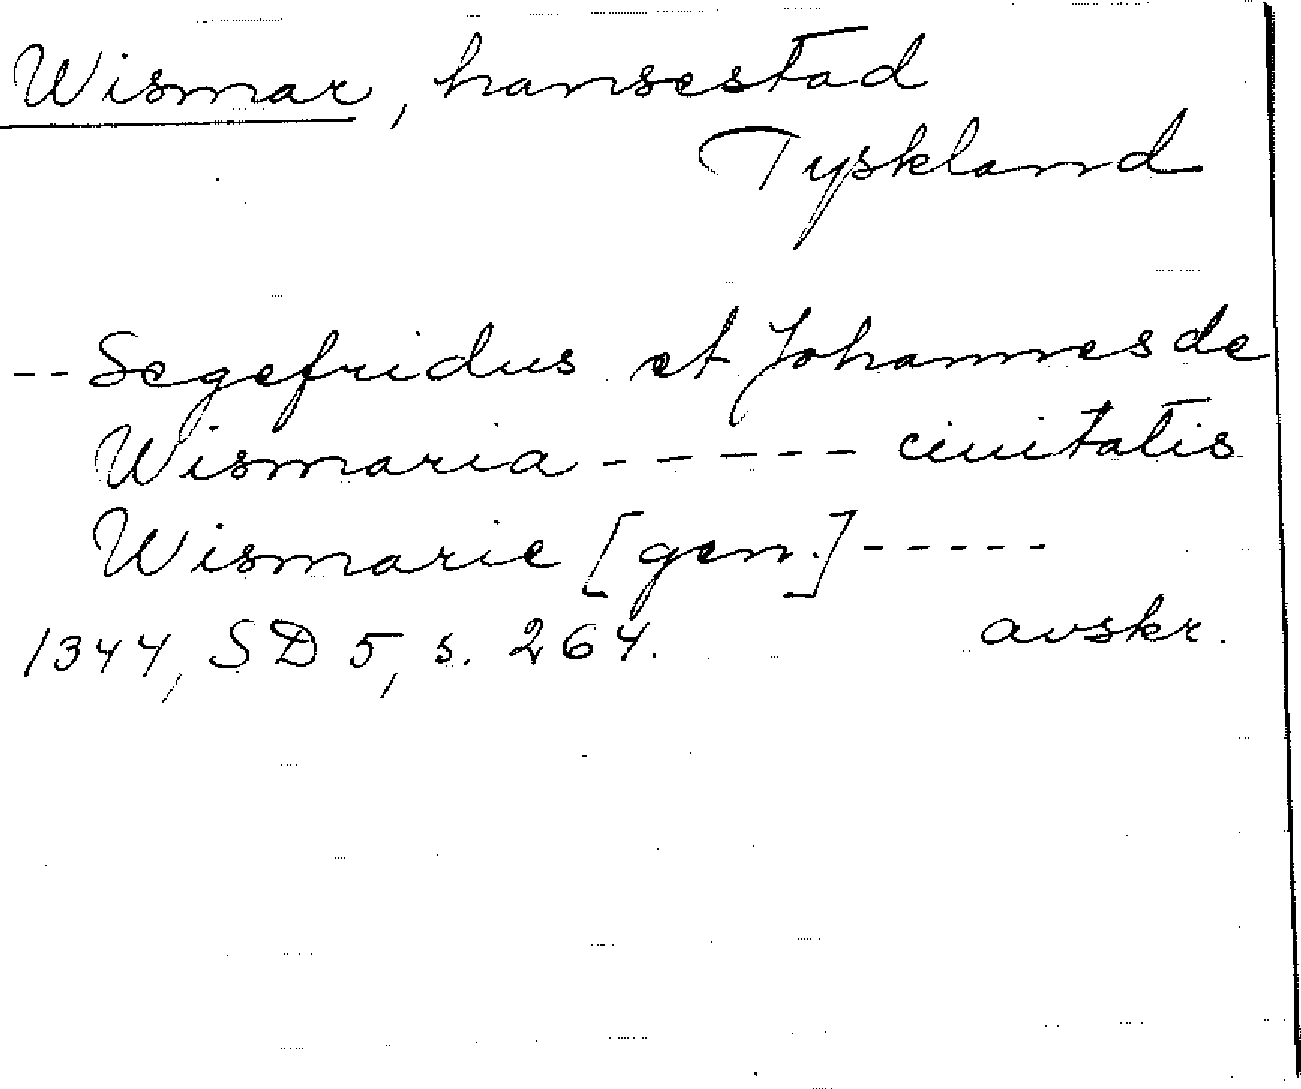 Wismar, hansestad
Tyskland
-- Segefridus et Johannes de
Wismaria ----- ciuitatis
Wismarie [gen.] -----
1344, SD 5, s. 264. avskr.